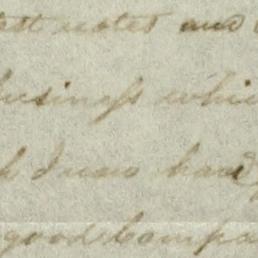 notes and
business whic
I was hard
good Compa